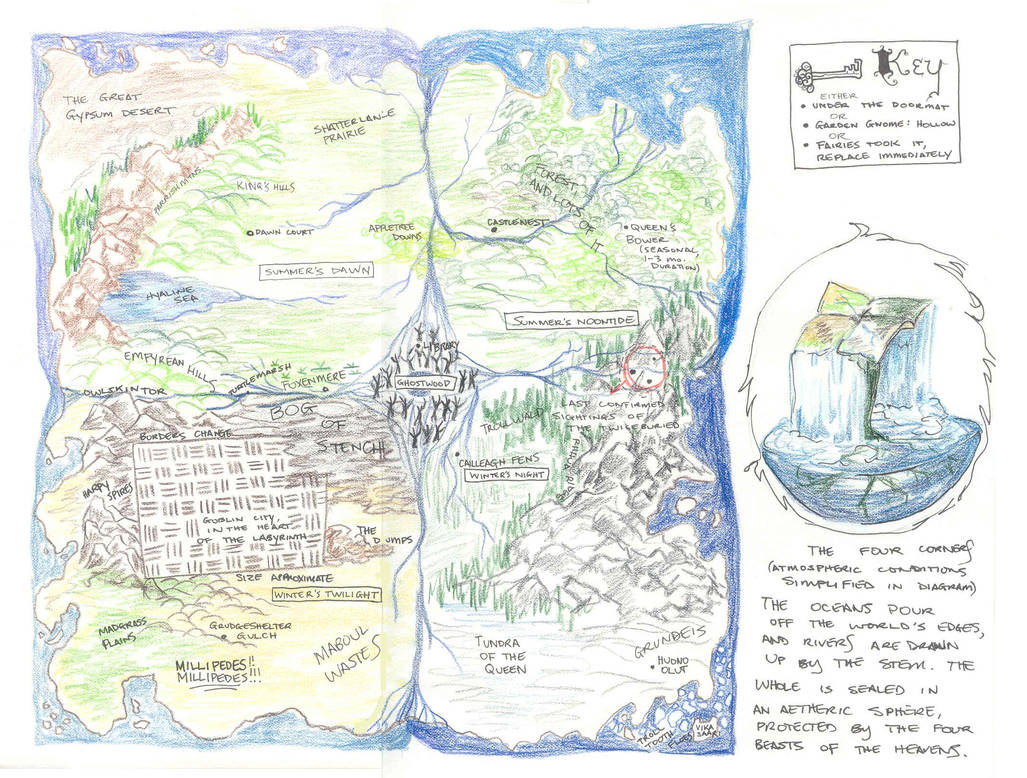 THE GREAT
GYPSUM DESERT
SHATTERLANCE
PRAIRIE
PARRISH MTNS
KING'S HILLS
DAWN COURT
APPLETREE
DOWNS
SUMMER'S DAWN
HYALINE
SEA
EMPYREAN HILLS
OWLSKIN TOR
TURTLEMARSH
FOXENMERE
FOREST,
AND LOTS
OF IT
CASTLENEST
QUEEN'S
BOWER
(SEASONAL,
1-3 MO.
DURATION)
SUMMER'S NOONTIDE
LIBRARY
GHOSTWOOD
BOG
OF
STENCH
BORDERS CHANGE
HARPY
SPIRES
GOBLIN CITY,
IN THE HEART
OF THE LABYRINTH
THE
DUMPS
SIZE APPROXIMATE
WINTER'S TWILIGHT
MADGRASS
PLAINS
GRUDGESHELTER
GULCH
MILLIPEDES!!
MILLIPEDES!!!
MABOUL
WASTES
TROLLWALD
LAST CONFIRMED
SIGHTINGS OF
THE TWICEBURIED
CAILLEAGH FENS
WINTER'S NIGHT
TUNDRA
OF THE
QUEEN
GRUNDEIS
HUONO
OLUT
TROLL
TOOTH
VIKA
SAARI
KEY
EITHER
• UNDER THE DOORMAT
OR
• GARDEN GNOME: HOLLOW
OR
• FAIRIES TOOK IT,
REPLACE IMMEDIATELY
THE FOUR CORNERS
(ATMOSPHERIC CONDITIONS
SIMPLIFIED IN DIAGRAM)
THE OCEANS POUR
OFF THE WORLD'S EDGES,
AND RIVERS ARE DRAWN
UP BY THE STEM. THE
WHOLE IS SEALED IN
AN AETHERIC SPHERE,
PROTECTED BY THE FOUR
BEASTS OF THE HEAVENS.